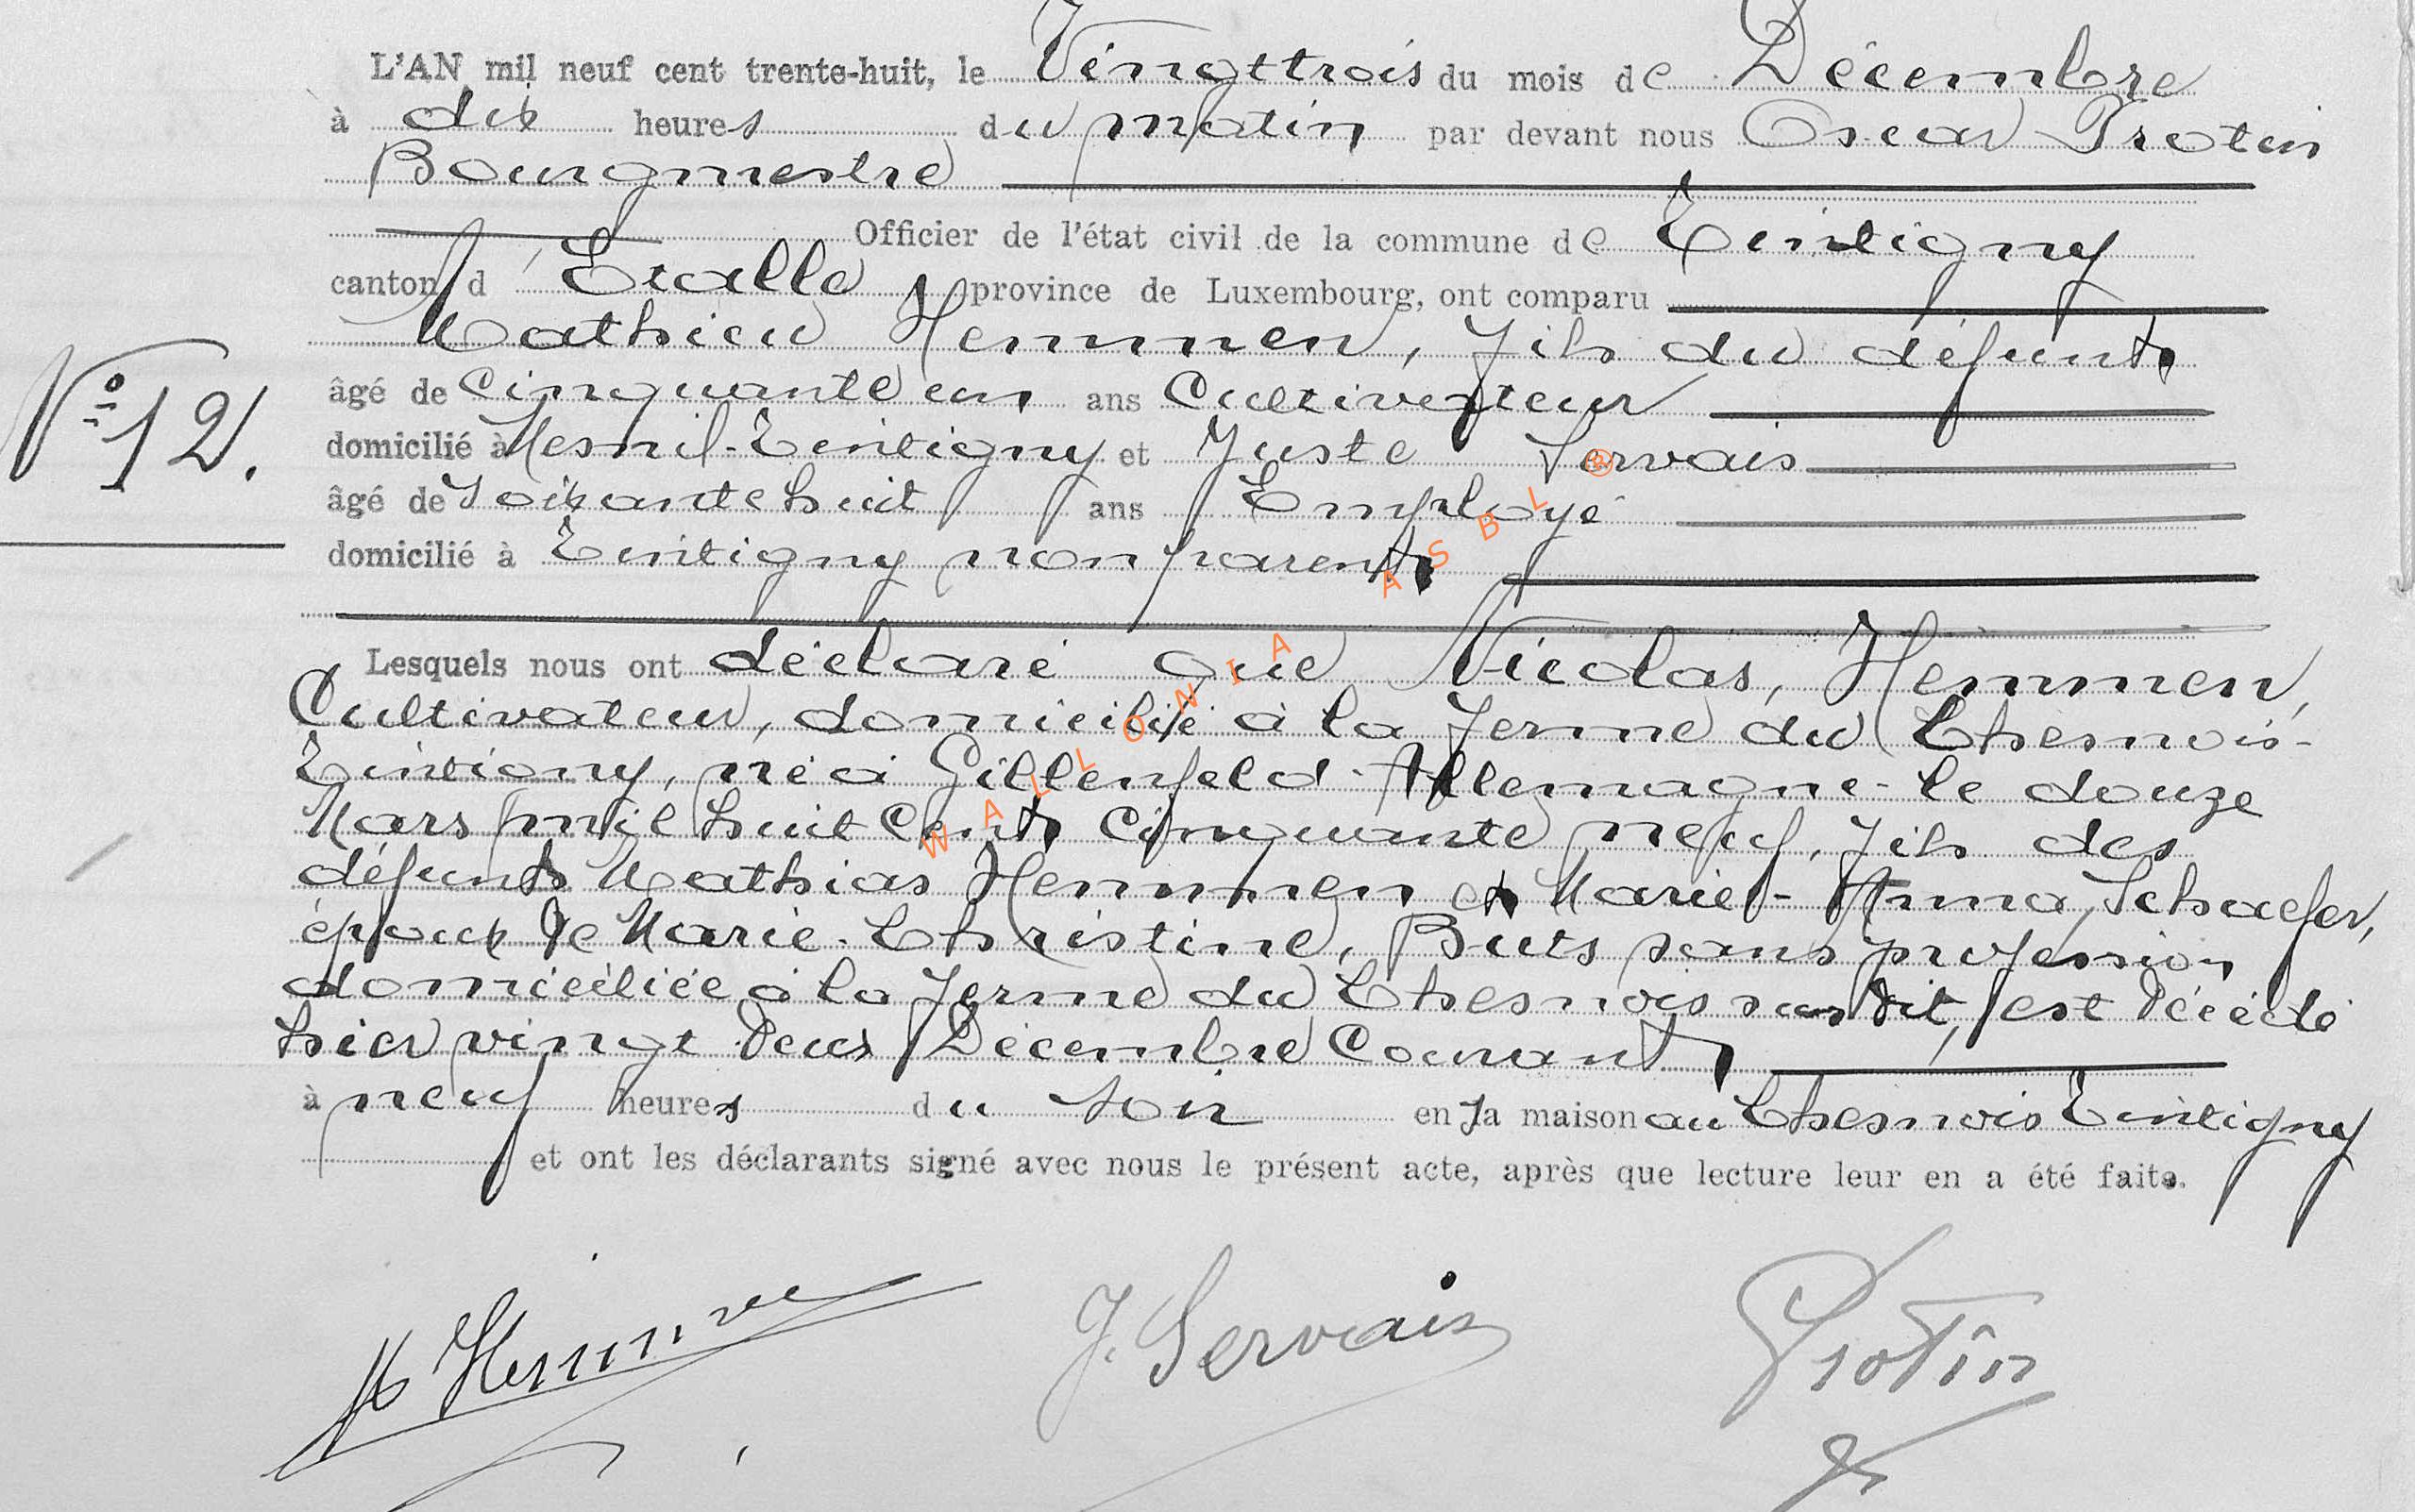 L'AN mil neuf cent trente-huit, le Vingttrois du mois de Décembre
à dix heures du matin par devant nous Oscar Protin
Bourgmestre
Officier de l'état civil de la commune de Tintigny
canton d'Etalle province de Luxembourg, ont comparu
Mathieu Hemmen, fils du défunt
N° 12.
âgé de Cinquante un ans Cultivateur
domicilié à Mesnil-Tintigny et Juste Servais
âgé de Soixante huit ans Employé
domicilié à Tintigny non parents
Lesquels nous ont déclaré que Nicolas, Hemmen,
Cultivateur, domicilié à la ferme du Chesnois-
Tintigny, né à Gillenfeld-Allemagne-le douze
Mars mil huit Cent Cinquante neuf, fils des
défunts Mathias Hemmen et Marie-Anna Schaefer,
époux de Marie-Christine, Buts sans profession
domiciliée à la ferme du Chesnois susdit, est décédé
hier vingt deux Décembre Courant
à neuf heures du soir en la maison au Chesnois Tintigny
et ont les déclarants signé avec nous le présent acte, après que lecture leur en a été faite.
M Hemmen J. Servais Protin
WALLONIA ASBL ®